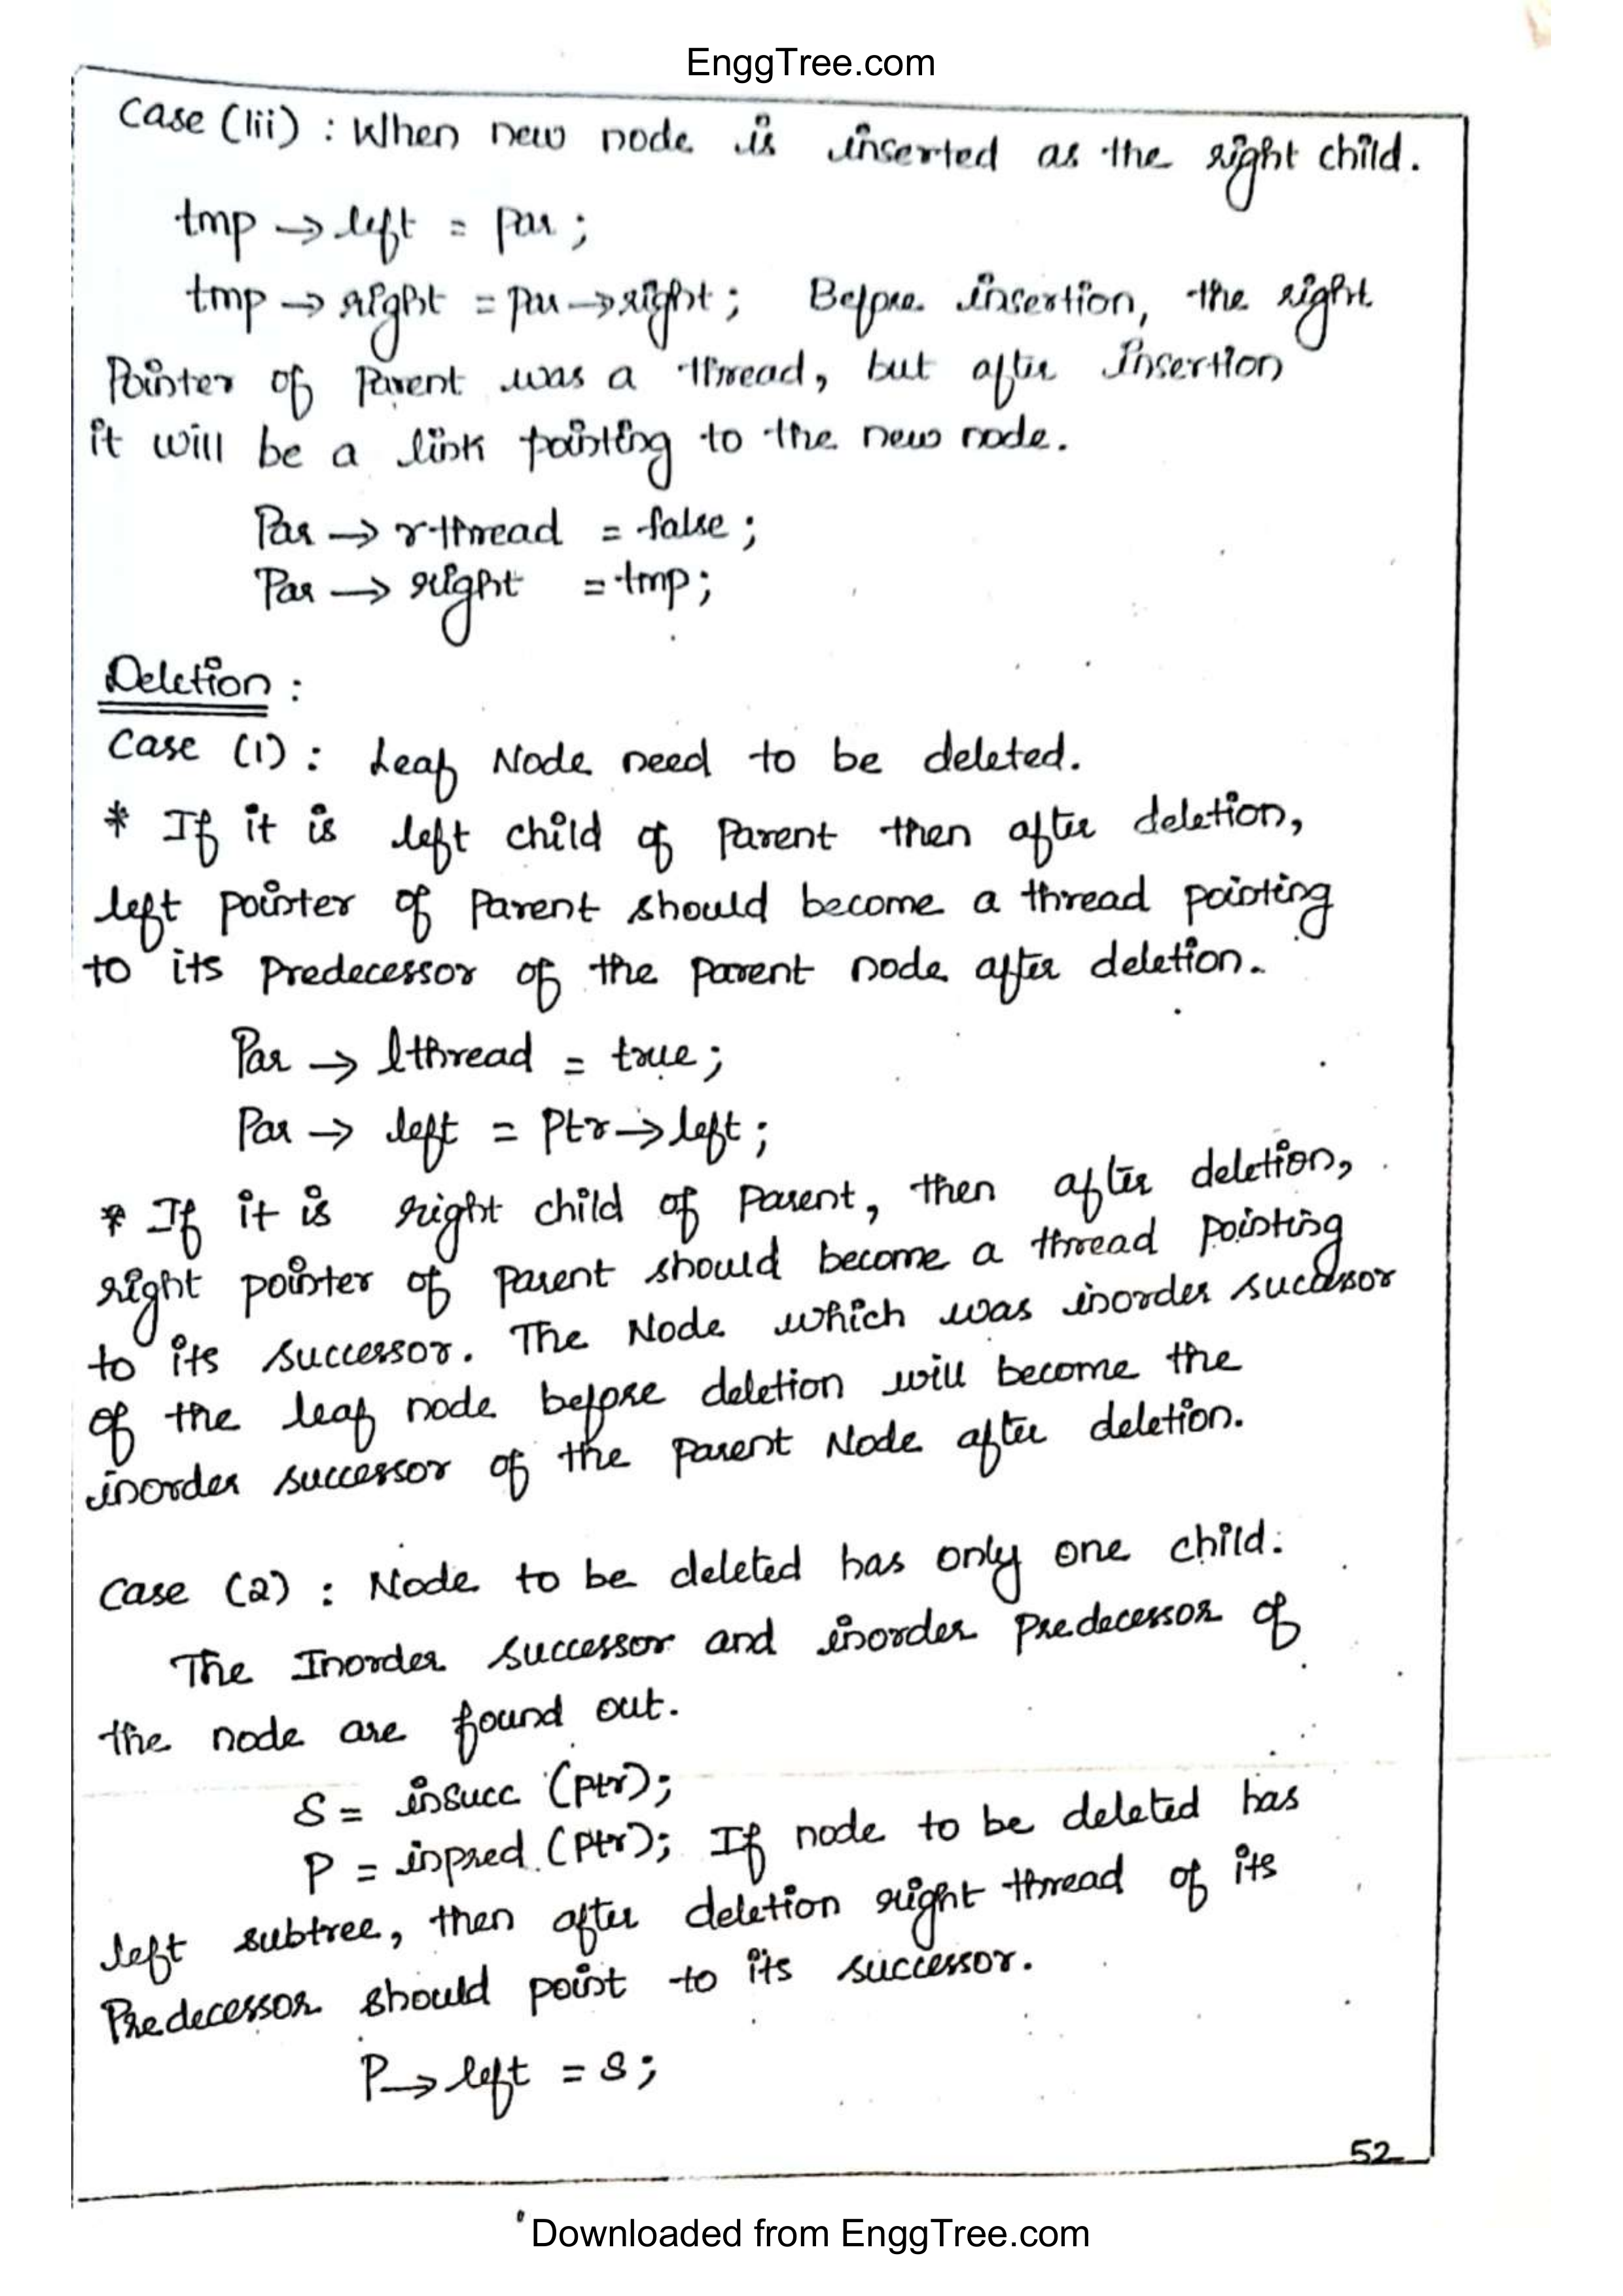 EnggTree.com
Case (iii) : When new node is inserted as the right child.
tmp → left = par ;
tmp → right = par → right ; Before insertion, the right
Pointer of Parent was a thread, but after Insertion
it will be a link pointing to the new node.
Par → rthread = false ;
Par → right = tmp ;
Deletion :
Case (1) : Leaf Node need to be deleted.
* If it is left child of Parent then after deletion,
left pointer of Parent should become a thread pointing
to its predecessor of the parent node after deletion.
Par → lthread = true ;
Par → left = Ptr → left ;
* If it is right child of Parent, then after deletion,
right pointer of Parent should become a thread pointing
to its successor. The Node which was inorder sucessor
of the leaf node before deletion will become the
inorder successor of the Parent Node after deletion.
Case (2) : Node to be deleted has only one child.
The Inorder successor and inorder Predecessor of
the node are found out.
S = insucc (Ptr);
P = inpred (Ptr); If node to be deleted has
left subtree, then after deletion right thread of its
Predecessor should point to its successor.
P → left = S ;
52
Downloaded from EnggTree.com